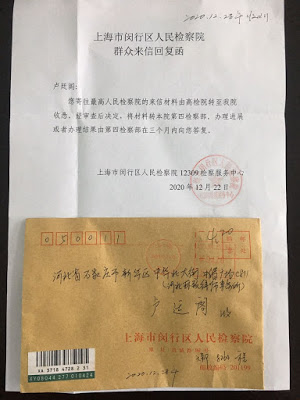 2020.12.28
上海市闵行区人民检察院
群众来信回复函
卢廷阁:
您寄往最高人民检察院的来信材料由高检院转至我院
收悉。经审查后决定,将材料转本院第四检察部,办理进展
或者办理结果由第四检察部在三个月内向您答复。
上海市闵行区人民检察院 12309 检察服务中心
2020 年 12 月 22 日
050011
河北省石家庄市新华区中华北大街
卢廷阁
上海市闵行区人民检察院
XA 3710 4728 2 31
2020.12.28